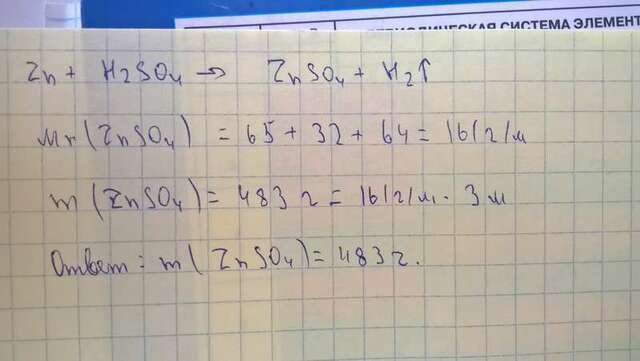 ПЕРИОДИЧЕСКАЯ СИСТЕМА ЭЛЕМЕНТ
Zn + H2SO4 → ZnSO4 + H2↑
Mr (ZnSO4) = 65 + 32 + 64 = 161 г/м
m (ZnSO4) = 483 г = 161 г/м · 3 м
Ответ: m (ZnSO4) = 483 г.